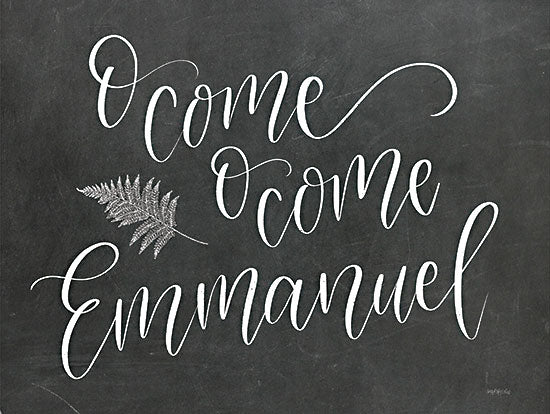 O come
O come
Emmanuel